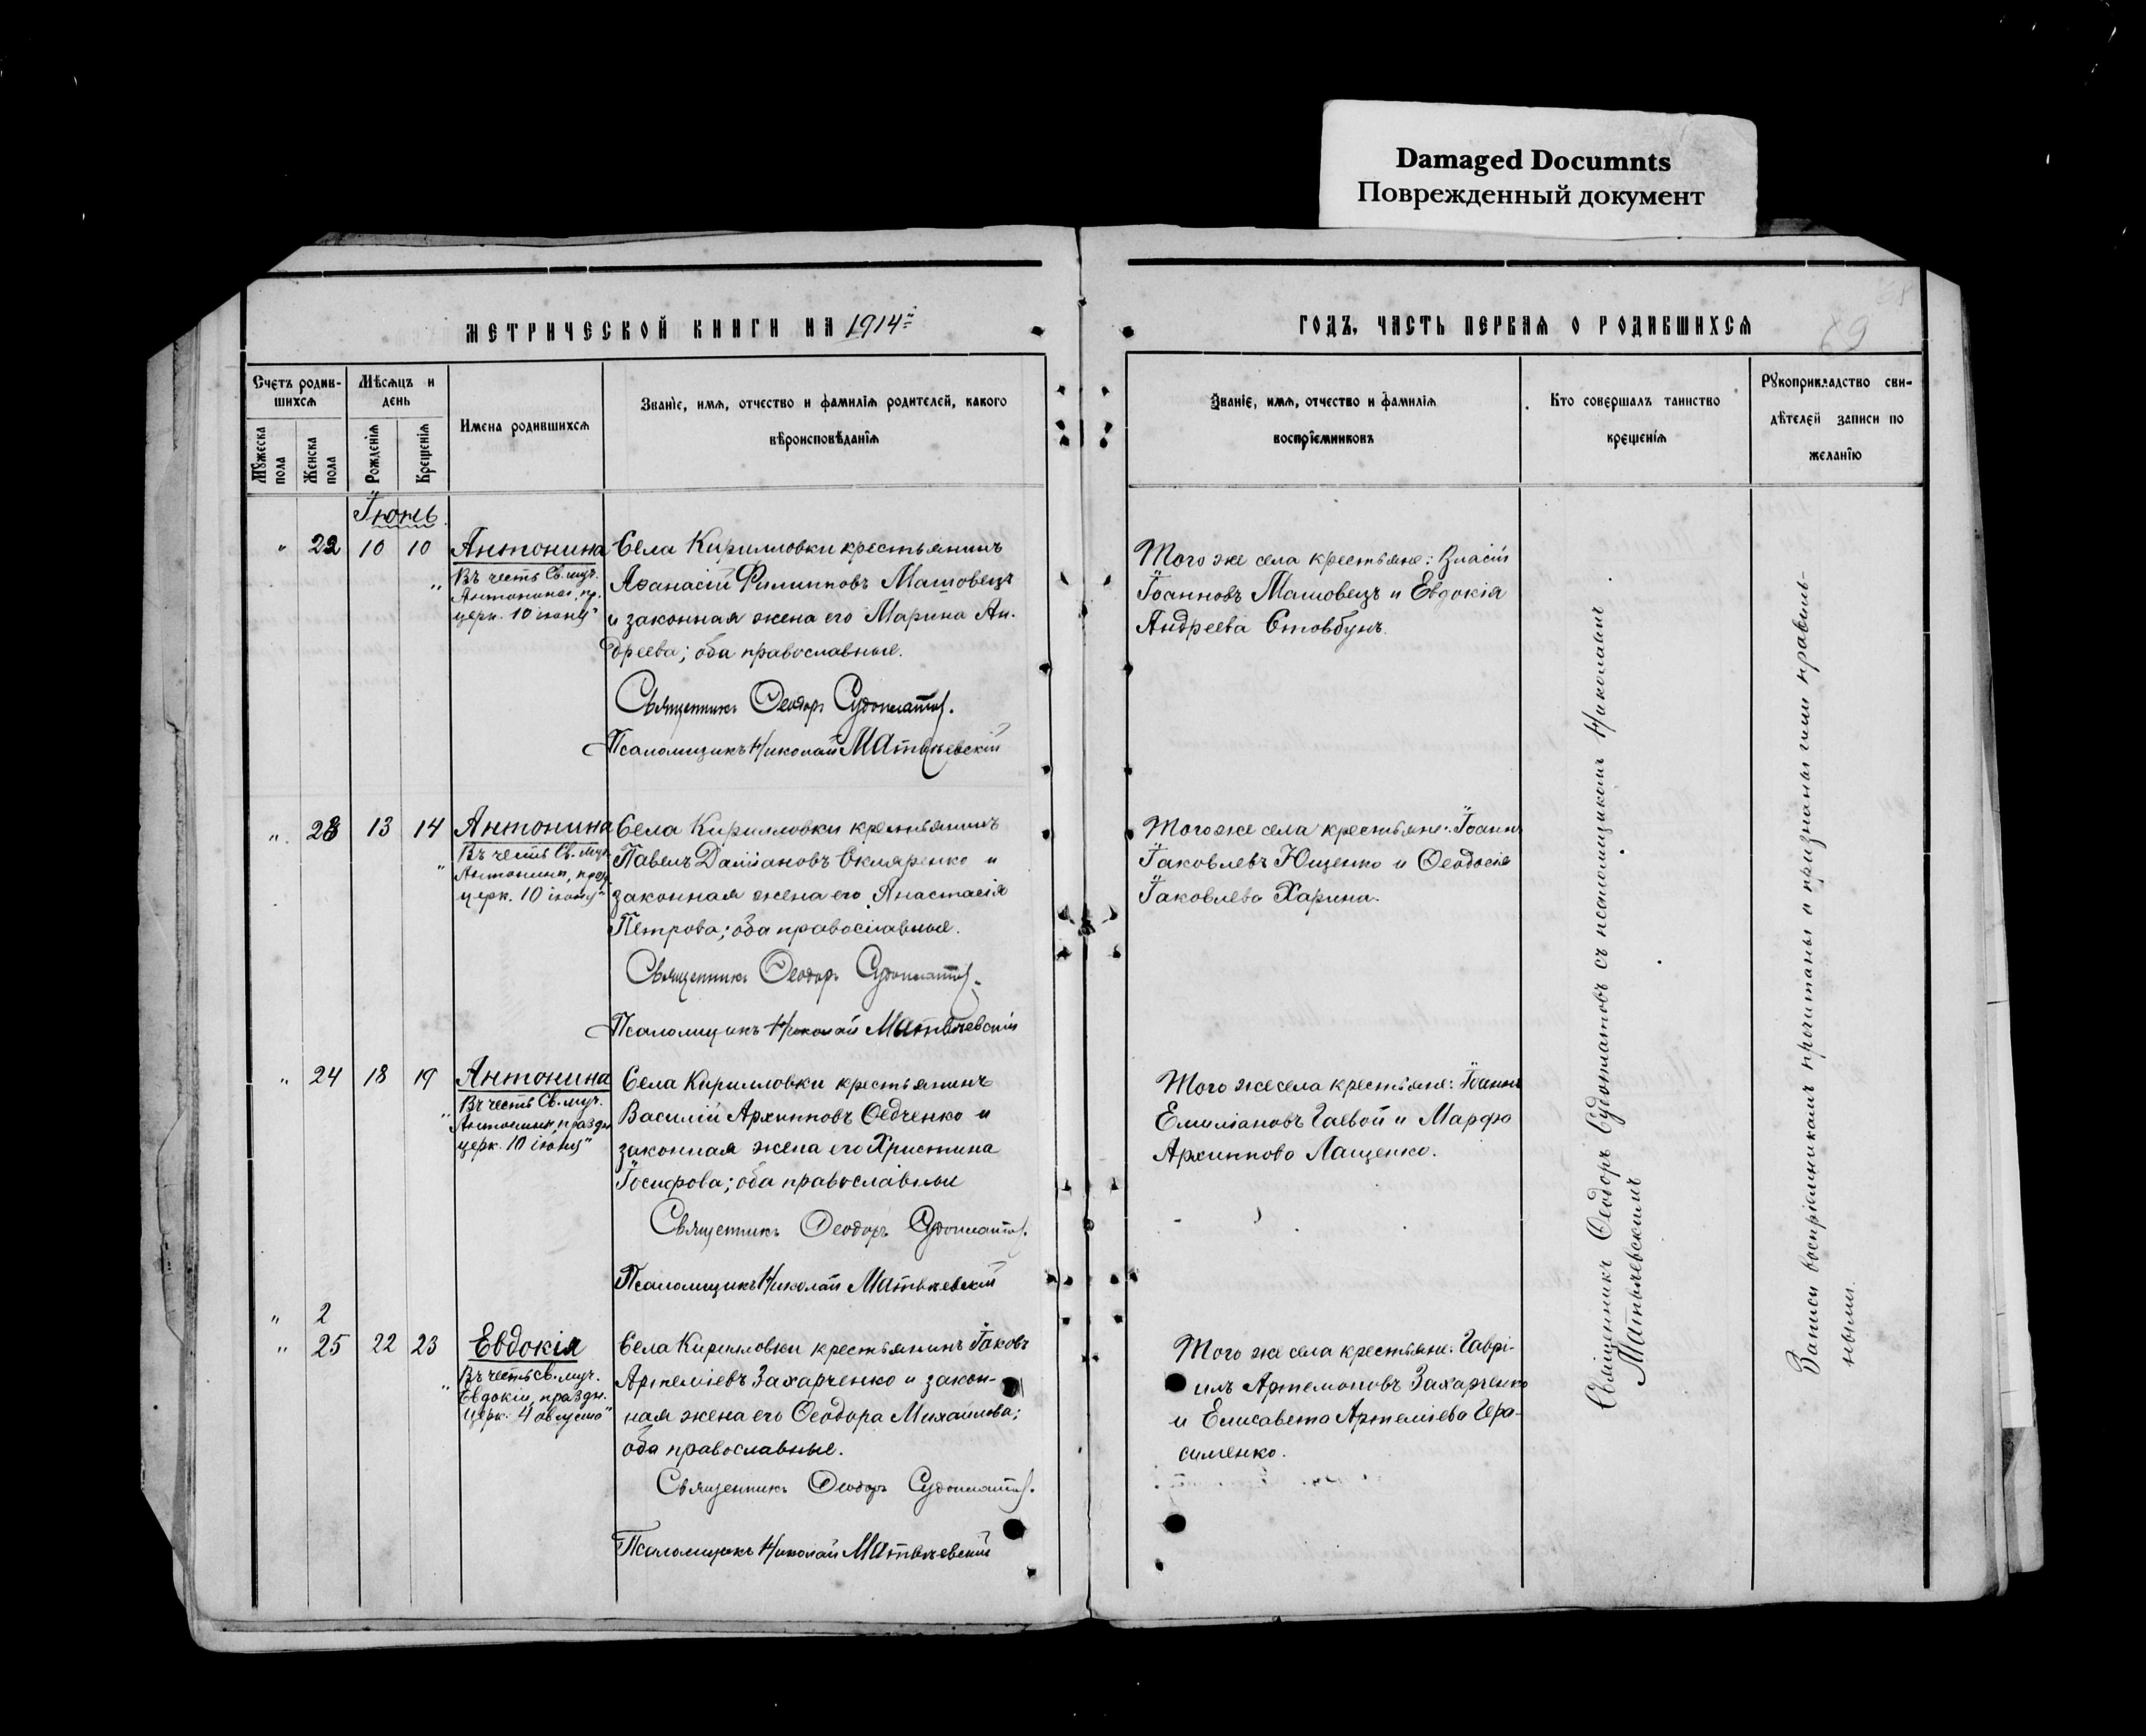 Damaged Documnts
Поврежденный документ
МЕТРИЧЕСКОЙ КНИГИ НА 1914й
ГОДЪ, ЧАСТЬ ПЕРВАЯ О РОДИВШИХСЯ
69
Счетъ родив-
шихся
Мѣсяцъ и
день
Мужеска
пола
Женска
пола
Рожденія
Крещенія
Имена родившихся
Званіе, имя, отчество и фамилія родителей, какого
вѣроисповѣданія
Званіе, имя, отчество и фамилія
воспріемниковъ
Кто совершалъ таинство
крещенія
Рукоприкладство сви-
дѣтелей записи по
желанію
Іюнь
" 22 10 10 Антонина
"Въ честь Св. муч.
Антонины, пр.
церк. 10 іюня"
Села Кирилловки крестьянинъ
Аѳанасій Филипповъ Машовецъ
и законная жена его Марина Ан-
дреева; оба православные.
Священникъ Ѳеодоръ Судоплатовъ.
Псаломщикъ Николай Матвѣевскій
Того же села крестьяне: Власій
Іоанновъ Машовецъ и Евдокія
Андреева Стовбунъ.
" 23 13 14 Антонина
"Въ честь Св. муч.
Антонины, празд.
церк. 10 іюня"
Села Кирилловки крестьянинъ
Павелъ Даміановъ Скляренко и
законная жена его Анастасія
Петрова; оба православные.
Священникъ Ѳеодоръ Судоплатовъ.
Псаломщикъ Николай Матвѣевскій
Того же села крестьяне: Іоаннъ
Іаковлевъ Ющенко и Ѳеодосія
Іаковлева Харина.
" 24 18 19 Антонина
"Въ честь Св. муч.
Антонины, праздн.
церк. 10 іюня"
Села Кирилловки крестьянинъ
Василій Архипповъ Ѳедченко и
законная жена его Христина
Іосифова; оба православные
Священникъ Ѳеодоръ Судоплатовъ.
Псаломщикъ Николай Матвѣевскій
Того же села крестьяне: Іоаннъ
Емиліановъ Гаевой и Марфа
Архиппова Лащенко.
" 2
" 25 22 23 Евдокія
"Въ честь Св. муч.
Евдокіи, праздн.
церк. 4 августа"
Села Кирилловки крестьянинъ Іаковъ
Артеміевъ Захарченко и закон-
ная жена его Ѳеодора Михайлова;
оба православные.
Священникъ Ѳеодоръ Судоплатовъ.
Псаломщикъ Николай Матвѣевскій
Того же села крестьяне: Гаврі-
илъ Артемоновъ Захарченко
и Елисавета Артеміева Гера-
сименко.
Священникъ Ѳеодоръ Судоплатовъ съ псаломщикомъ Николаемъ
Матвѣевскимъ
Записи воспріемникамъ прочитаны и признаны ими правиль-
ными.